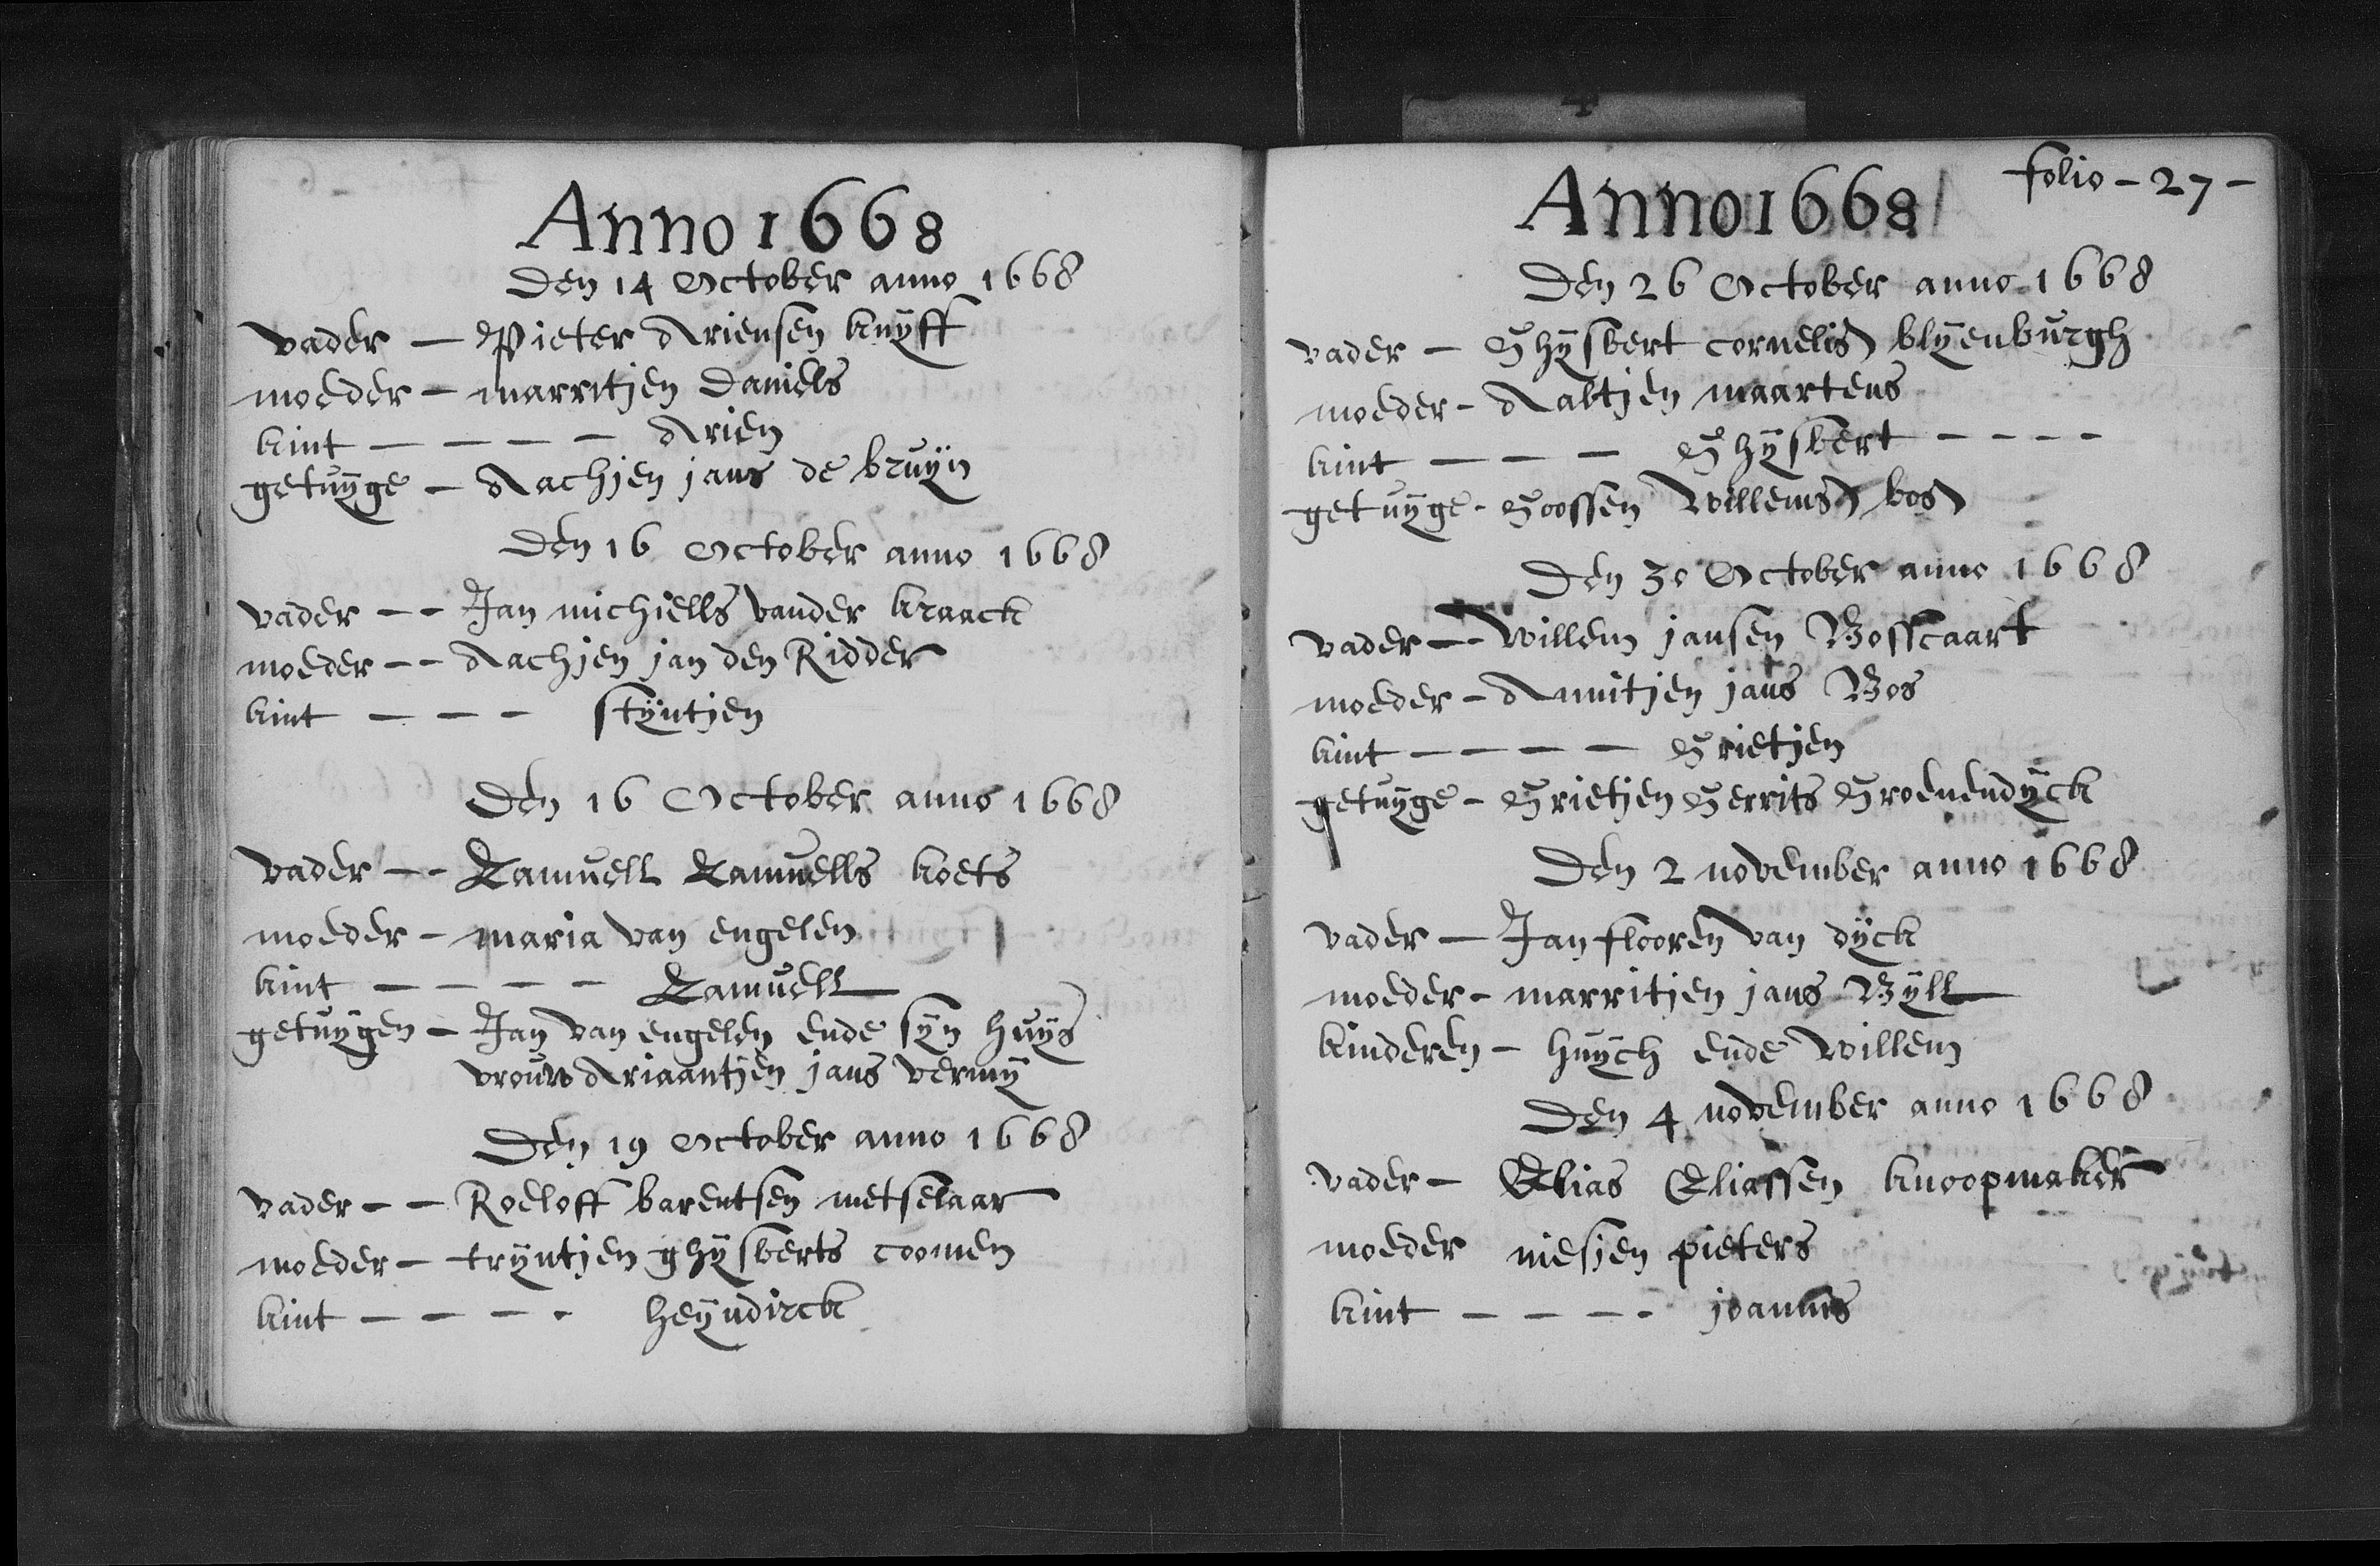 Anno 1668
Den 14 October anno 1668
vader — Pieter Ariensen kuyff
moeder — marritjen Daniels
kint — — — — Arien
getuÿge — Aachjen jans de bruÿn
Den 16 October anno 1668
vader — — Jan michiells vander kraack
moeder — — Aachjen jan den Ridder
kint — — — stÿntjen
Den 16 October anno 1668
vader — — Samuell Samuells koets
moeder — maria van engelen
kint — — — — Samuell
getuÿgen — Jan van engelen ende sÿn huÿs
vrouw Ariaantjen jans vermÿ
Den 19 October anno 1668
vader — — Roeloff barentsen metselaar
moeder — trÿntjen ghÿsberts coomen
kint — — — — heÿndirck
folio - 27 -
Anno 1668
Den 26 October anno 1668
vader — Ghÿsbert cornelis blÿenburgh
moeder — Aaltjen maartens
kint — — — Ghÿsbert — — — —
getuÿge - Goossen Willems bos
Den 30 October anno 1668
vader — Willem jansen Bosscaart
moeder — Annitjen jans Bos
kint — — — — Grietjen
getuÿge — Grietjen Gerrits Groenendÿck
Den 2 november anno 1668
vader — Jan flooren van dÿck
moeder — marritjen jans Bÿll
kinderen — huÿch ende Willem
Den 4 november anno 1668
vader — Elias Eliassen knoopmaker
moeder niesjen pieters
kint — — — — joannis